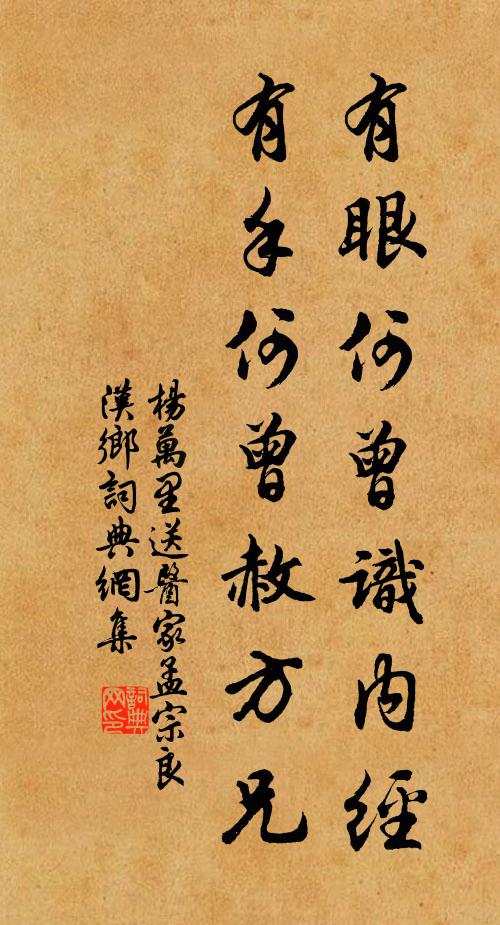 有眼何曾識内經
有手何曾赦方兄
楊萬里送醫家孟宗良
漢鄉詞典網集
詞典网印